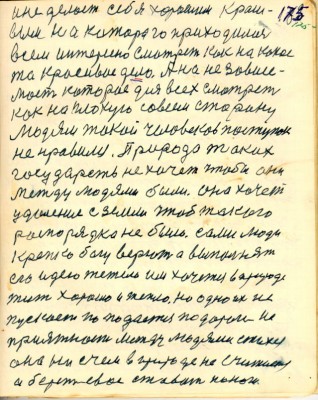 175
и не делает себя хорошим краси-
вым на которого приходился
всем интересно смотрет как на какое
та красивое дело. А на не зависи-
мост которое для всех смотрет
как на плохую совсем старану
людям такой человеков поступок
не нравился. Природа таких
государств не хочет чтоби они
между людями были. она хочет
удаление с земли чтоб такого
распорядка не было. сами люди
крепко богу верют а выполнят
его идею тежело им хочется в природе
жит хорошо и тепло, но одно их не
пускает по
приятности между людями стихи
она ни с чем в природе не считается
а берет свое ставит